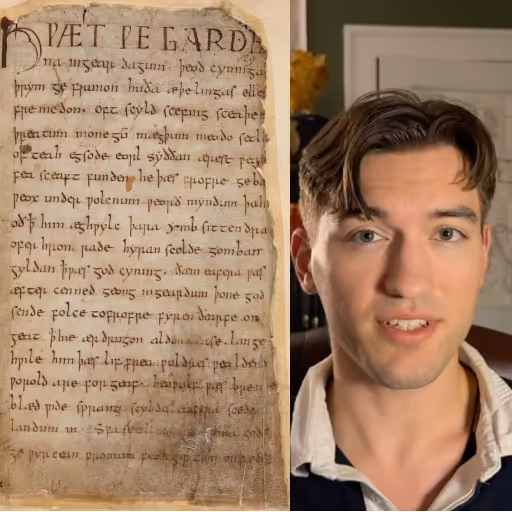 HǷÆT ǷE GARDE
na ingear dagum. þeod cyninga
þrym ge frunon huða æþelingas elle
fremedon. oft scyld scefing sceaþe
þreatum monegū mægþum meodo setl
of teah egsode eorl syððan ærest ƿear
fea sceaft funden he þæs frofre geba
ƿeox under ƿolcnum ƿeorð myndum þah
oð ꝥ him æghƿylc þara ymb sittendra
ofer hron rade hyran scolde gomban
gyldan ꝥ ƿæs god cyning. ðæm eafera ƿæs
æfter cenned geong ingeardum þone god
sende folce tofrofre fyren ðearfe on
geat ꝥ hie ær drugon aldor ase. lange
hƿile him þæs lif frea ƿuldres ƿealdend
ƿorold are for geaf. beoƿulf ƿæs breme
blæd ƿide sprang scyldes eafera scede
landum in. Sƿa sceal guma gode
ge ƿyrcean fromum feoh giftum on